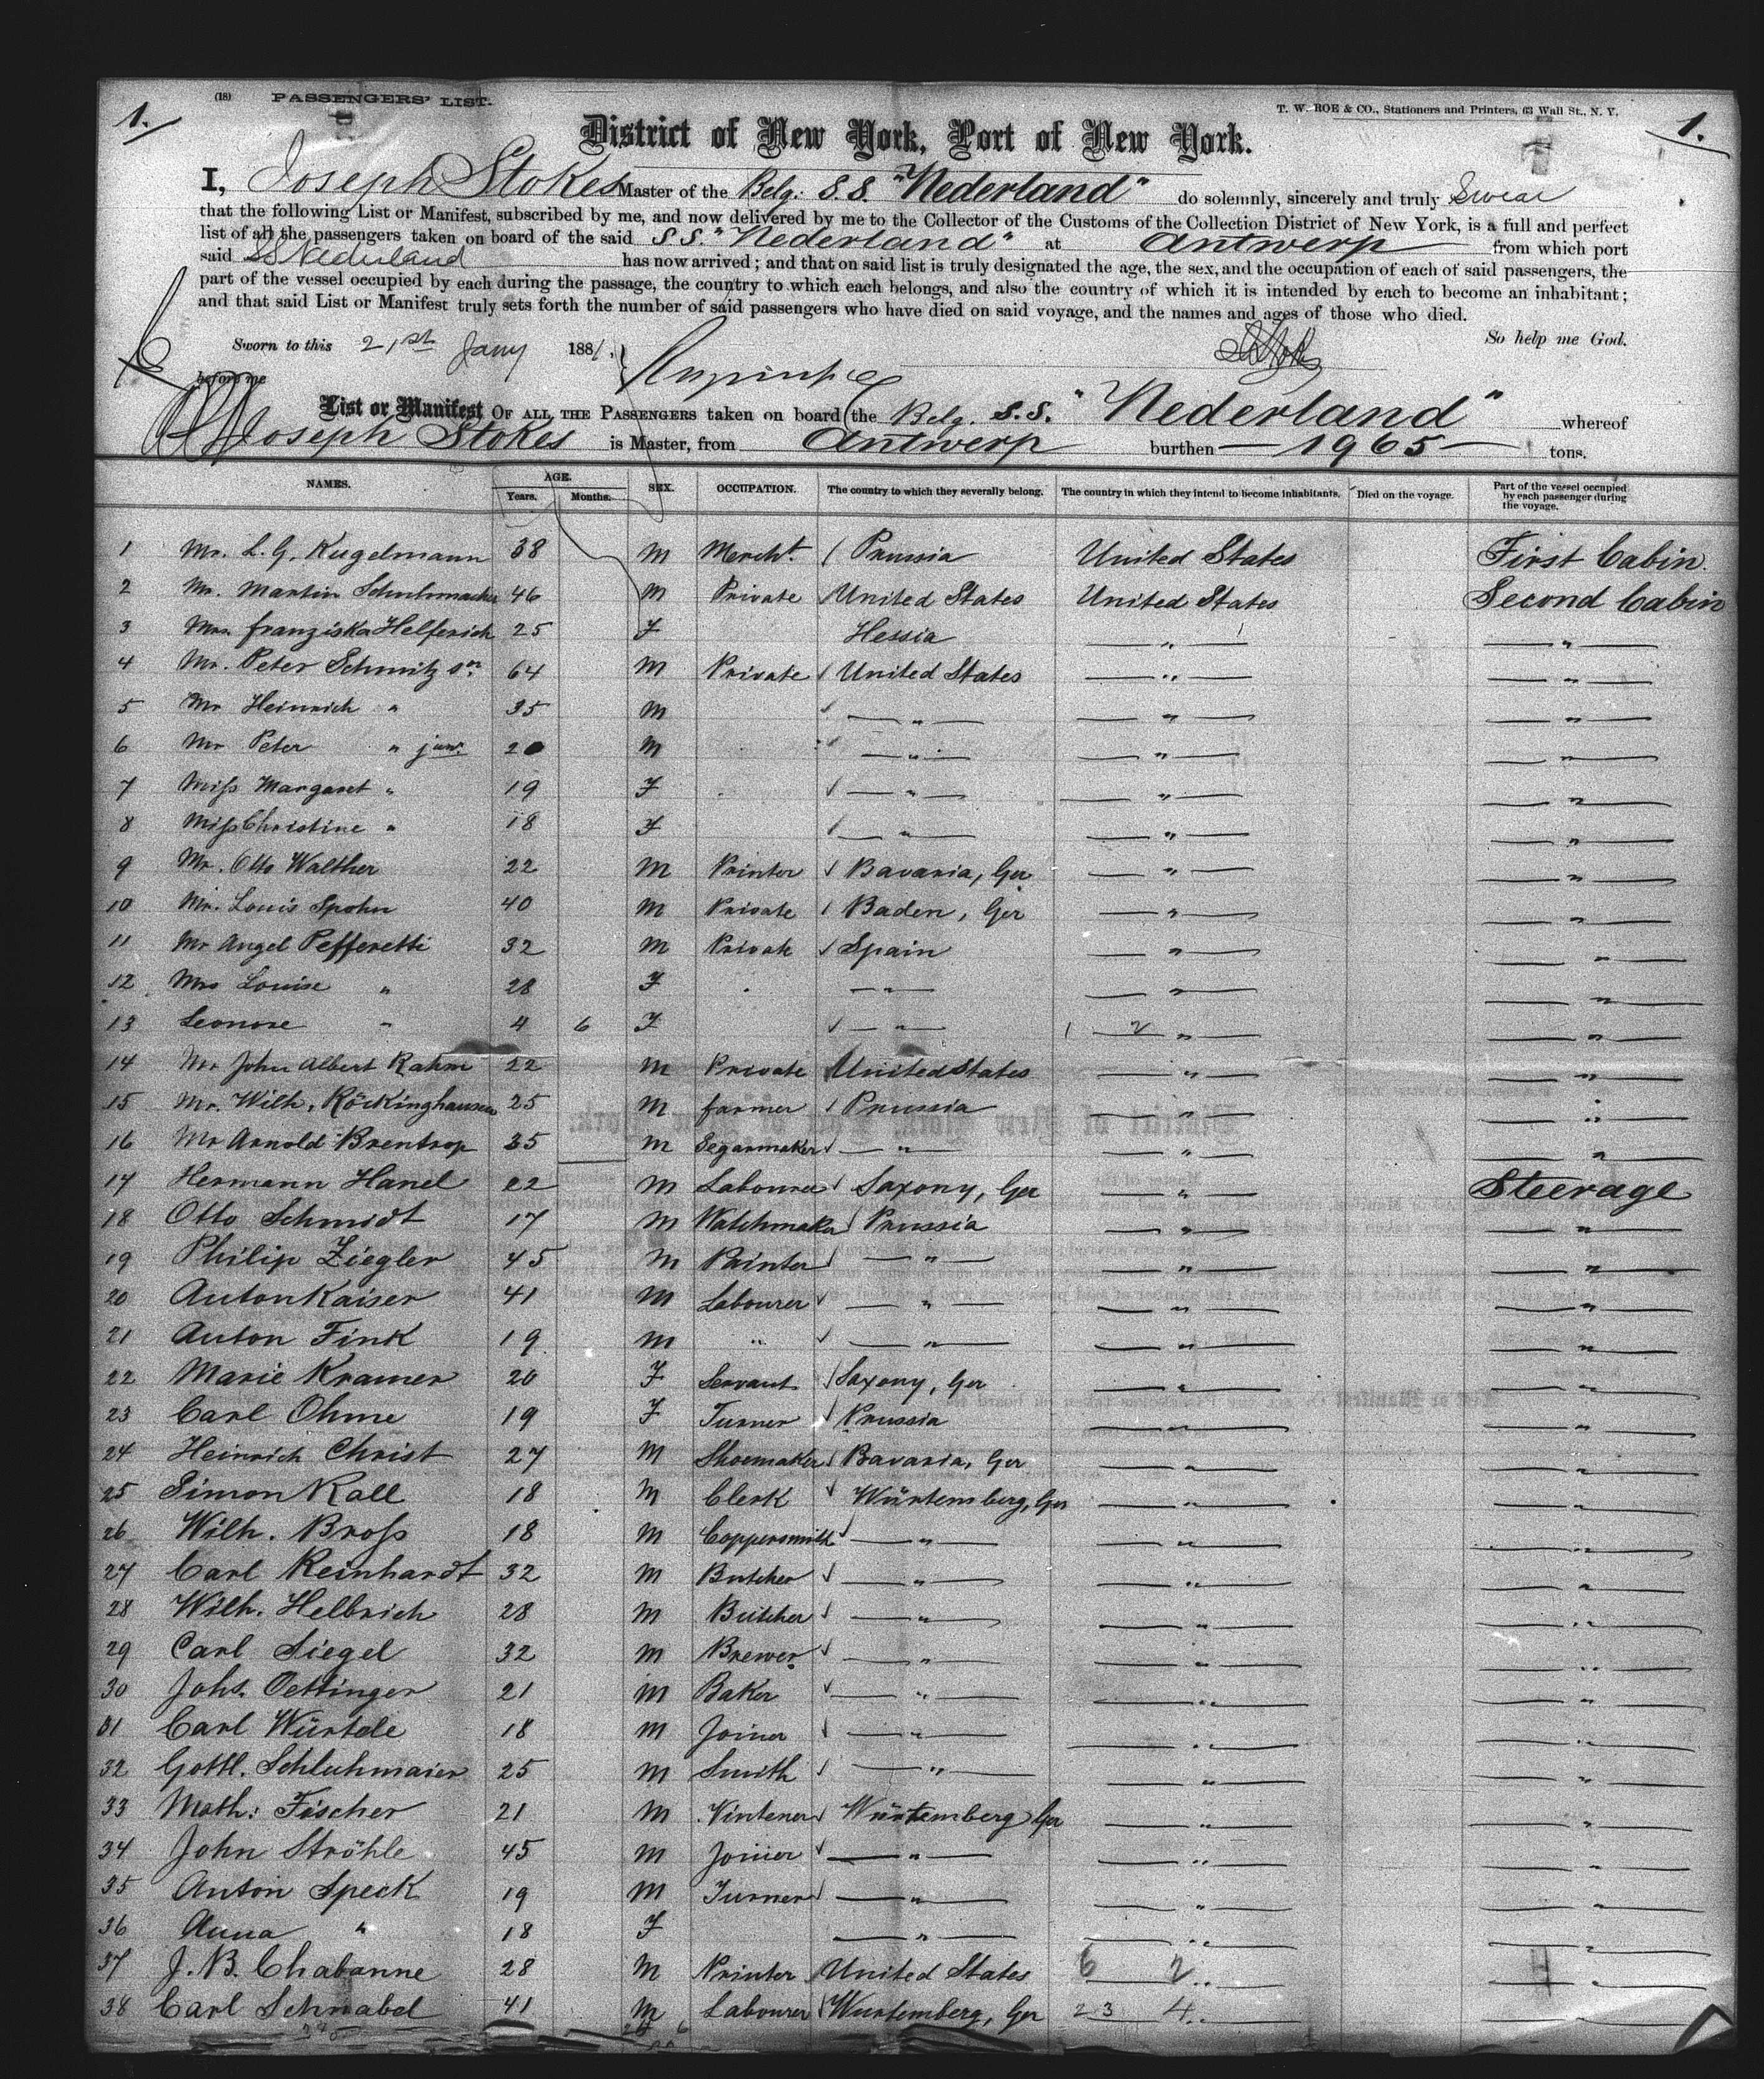 1. (18) PASSENGERS' LIST. T. W. ROE & CO., Stationers and Printers, 63 Wall St., N. Y. 1.
District of New York, Port of New York.
I, Joseph Stokes Master of the Belg: S.S. "Nederland" do solemnly, sincerely and truly Swear
that the following List or Manifest, subscribed by me, and now delivered by me to the Collector of the Customs of the Collection District of New York, is a full and perfect
list of all the passengers taken on board of the said S S. "Nederland" at Antwerp from which port
said SS Nederland has now arrived; and that on said list is truly designated the age, the sex, and the occupation of each of said passengers, the
part of the vessel occupied by each during the passage, the country to which each belongs, and also the country of which it is intended by each to become an inhabitant;
and that said List or Manifest truly sets forth the number of said passengers who have died on said voyage, and the names and ages of those who died.
Sworn to this 21st Jany 1881, So help me God.
before me
List or Manifest OF ALL THE PASSENGERS taken on board the Belg. S.S. "Nederland" whereof
Joseph Stokes is Master, from Antwerp burthen 1965 tons.
NAMES. AGE. Years. Months. SEX. OCCUPATION. The country to which they severally belong. The country in which they intend to become inhabitants. Died on the voyage. Part of the vessel occupied by each passenger during the voyage.
1 Mr. L. G. Kugelmann 38 M Mercht. Prussia United States First Cabin.
2 Mr. Martin Schuhmacher 46 M Private United States United States Second Cabin
3 Mrs. Franziska Helferich 25 F Hessia " "
4 Mr. Peter Schmitz sn. 64 M Private United States " "
5 Mr Heinrich " 35 M " " "
6 Mr Peter " junr. 20 M " " "
7 Miss Margaret " 19 F " " "
8 Miss Christine " 18 F " " "
9 Mr. Otto Walther 22 M Printer Bavaria, Ger " "
10 Mr. Louis Spohn 40 M Private Baden, Ger " "
11 Mr Angel Pefferetti 32 M Private Spain " "
12 Mrs Louise " 28 F " " "
13 Leonore " 4 6 F " " "
14 Mr John Albert Rahm 22 M Private United States " "
15 Mr. Wilh. Röckinghausen 25 M farmer Prussia " "
16 Mr Arnold Brentrop 35 M Segarmaker " " "
17 Hermann Hanel 22 M Labourer Saxony, Ger " Steerage
18 Otto Schmidt 17 M Watchmaker Prussia " "
19 Philip Ziegler 45 M Painter " " "
20 Anton Kaiser 41 M Labourer " " "
21 Anton Fink 19 M " " " "
22 Marie Kramer 20 F Servant Saxony, Ger " "
23 Carl Ohme 19 F Turner Prussia " "
24 Heinrich Christ 27 M Shoemaker Bavaria, Ger " "
25 Simon Kall 18 M Clerk Würtemberg, Ger " "
26 Wilh. Bross 18 M Coppersmith " " "
27 Carl Reinhardt 32 M Butcher " " "
28 Wilh. Helbrich 28 M Butcher " " "
29 Carl Siegel 32 M Brewer " " "
30 Johs. Oettinger 21 M Baker " " "
31 Carl Würtele 18 M Joiner " " "
32 Gottl. Schluhmaier 25 M Smith " " "
33 Math: Fischer 21 M Vintener Würtemberg Ger " "
34 John Ströhle 45 M Joiner " " "
35 Anton Speck 19 M Turner " " "
36 Anna " 18 F " " "
37 J. B. Chabanne 28 M Printer United States 6 2 " "
38 Carl Schnabel 41 M Labourer Wurtemberg, Ger 23 4 " "